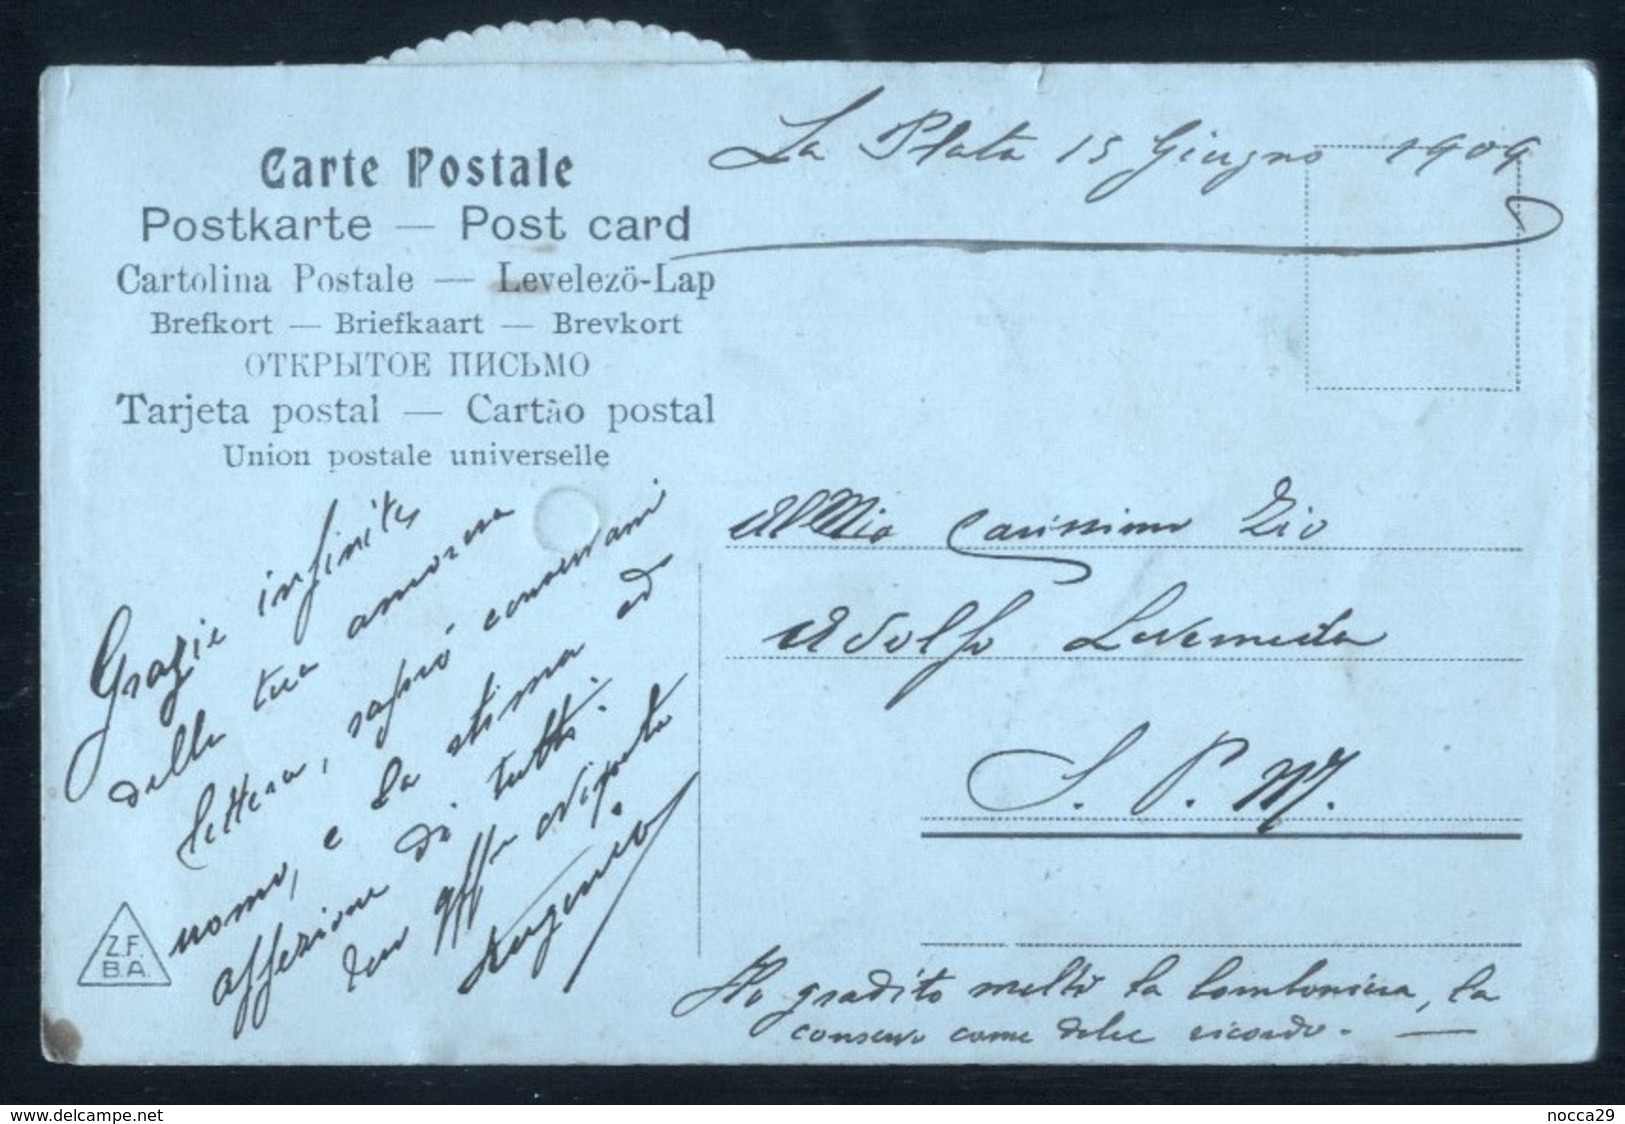 La Plata 15 Giugno 1909
Carte Postale
Postkarte — Post card
Cartolina Postale — Levelező-Lap
Brefkort — Briefkaart — Brevkort
ОТКРЫТОЕ ПИСЬМО
Tarjeta postal — Cartão postal
Union postale universelle
Grazie infinite
della tua amorosa
lettera, saprò conservarmi
uomo, e la stima ed
affezione di tutti.
tuo aff.
Eugenio
Al Mio Carissimo Zio
Adolfo
S. P. M.
Ho gradito molto la bomboniera, la
conservo come dolce ricordo. —
Z.F.
B.A.
www.delcampe.net
nocca29